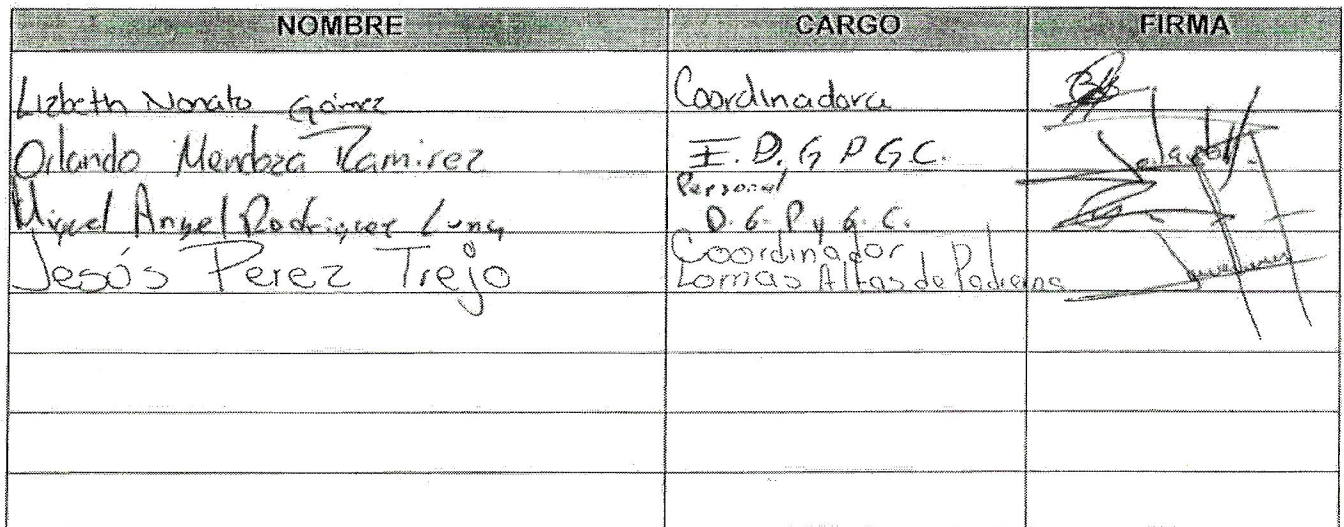 NOMBRE CARGO FIRMA
Lizbeth Nonato Gómez Coordinadora
Orlando Mendoza Ramirez E.D.G P G C.
Miguel Angel Rodriguez Luna Personal
D.G.P y G.C.
Jesús Perez Trejo Coordinador
Lomas Altas de Padierna